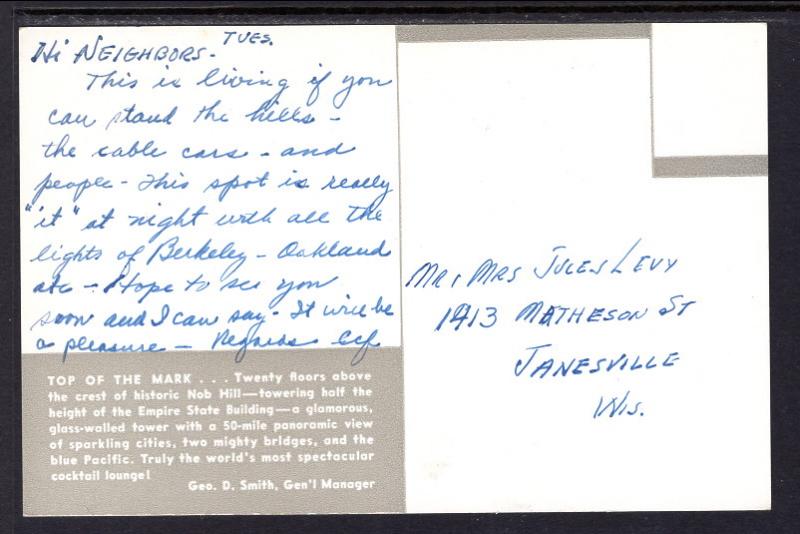 TUES.
Hi NEIGHBORS-
This is living if you
can stand the hills -
the cable cars - and
people - This spot is really
"it" at night with all the
lights of Berkeley - Oakland
etc - Hope to see you
soon and I can say - It will be
a pleasure - Regards
MR, MRS JULES LEVY
1413 MATHESON ST
JANESVILLE
WIS.
TOP OF THE MARK . . . Twenty floors above
the crest of historic Nob Hill—towering half the
height of the Empire State Building—a glamorous,
glass-walled tower with a 50-mile panoramic view
of sparkling cities, two mighty bridges, and the
blue Pacific. Truly the world's most spectacular
cocktail lounge!
Geo. D. Smith, Gen'l Manager